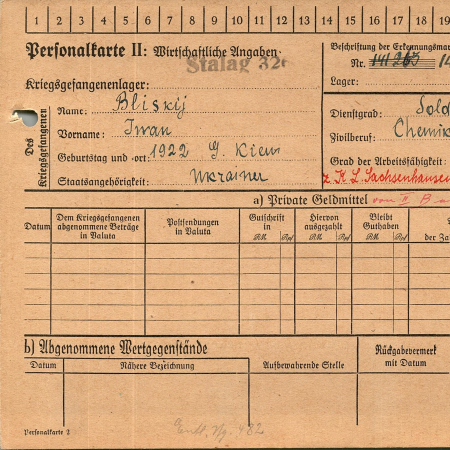 1 2 3 4 5 6 7 8 9 10 11 12 13 14 15 16 17 18 19
Personalkarte II: Wirtschaftliche Angaben
Stalag 32
Kriegsgefangenenlager:
Des Kriegsgefangenen
Name: Bliskij
Vorname: Iwan
Geburtstag und -ort: 1922 G. Kiew
Staatsangehörigkeit: Ukrainer
Beschriftung der Erkennungsmar
Nr. 141263 14
Lager:
Dienstgrad: Sold
Zivilberuf: Chemik
Grad der Arbeitsfähigkeit:
z. K L Sachsenhausen
a) Private Geldmittel von II B a
Datum
Dem Kriegsgefangenen abgenommene Beträge in Valuta
Postsendungen in Valuta
Gutschrift in
RM Rpf
Hiervon ausgezahlt
RM Rpf
Bleibt Guthaben
RM Rpf
der Za
b) Abgenommene Wertgegenstände
Datum
Nähere Bezeichnung
Aufbewahrende Stelle
Rückgabevermerk mit Datum
Personalkarte 2
482